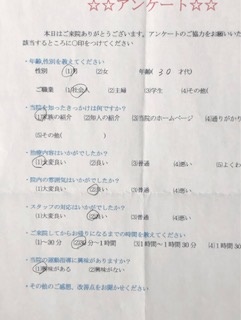 ☆☆アンケート☆☆
本日はご来院ありがとうございます。アンケートのご協力をお願いいた
該当するところに○印をつけてください
・年齢、性別を教えてください
性別 (1)男 (2)女 年齢( 30 才代)
ご職業 (1)社会人 (2)主婦 (3)学生 (4)その他(
・当院を知ったきっかけは何ですか?
(1)家族の紹介 (2)知人の紹介 (3)当院のホームページ (4)通りがかり
(5)その他( )
・治療内容はいかがでしたか?
(1)大変良い (2)良い (3)普通 (4)悪い (5)よくわ
・院内の雰囲気はいかがでしたか?
(1)大変良い (2)良い (3)普通 (4)悪い
・スタッフの対応はいかがでしたか?
(1)大変良い (2)良い (3)普通 (4)悪い
・ご来院してからお帰りになるまでの時間を教えてください
(1)~30分 (2)30分~1時間 (3)1時間~1時間30分 (4)1時間30
・当院の運動指導に興味がありますか?
(1)興味がある (2)興味がない
・その他のご感想、改善点をお聞かせください